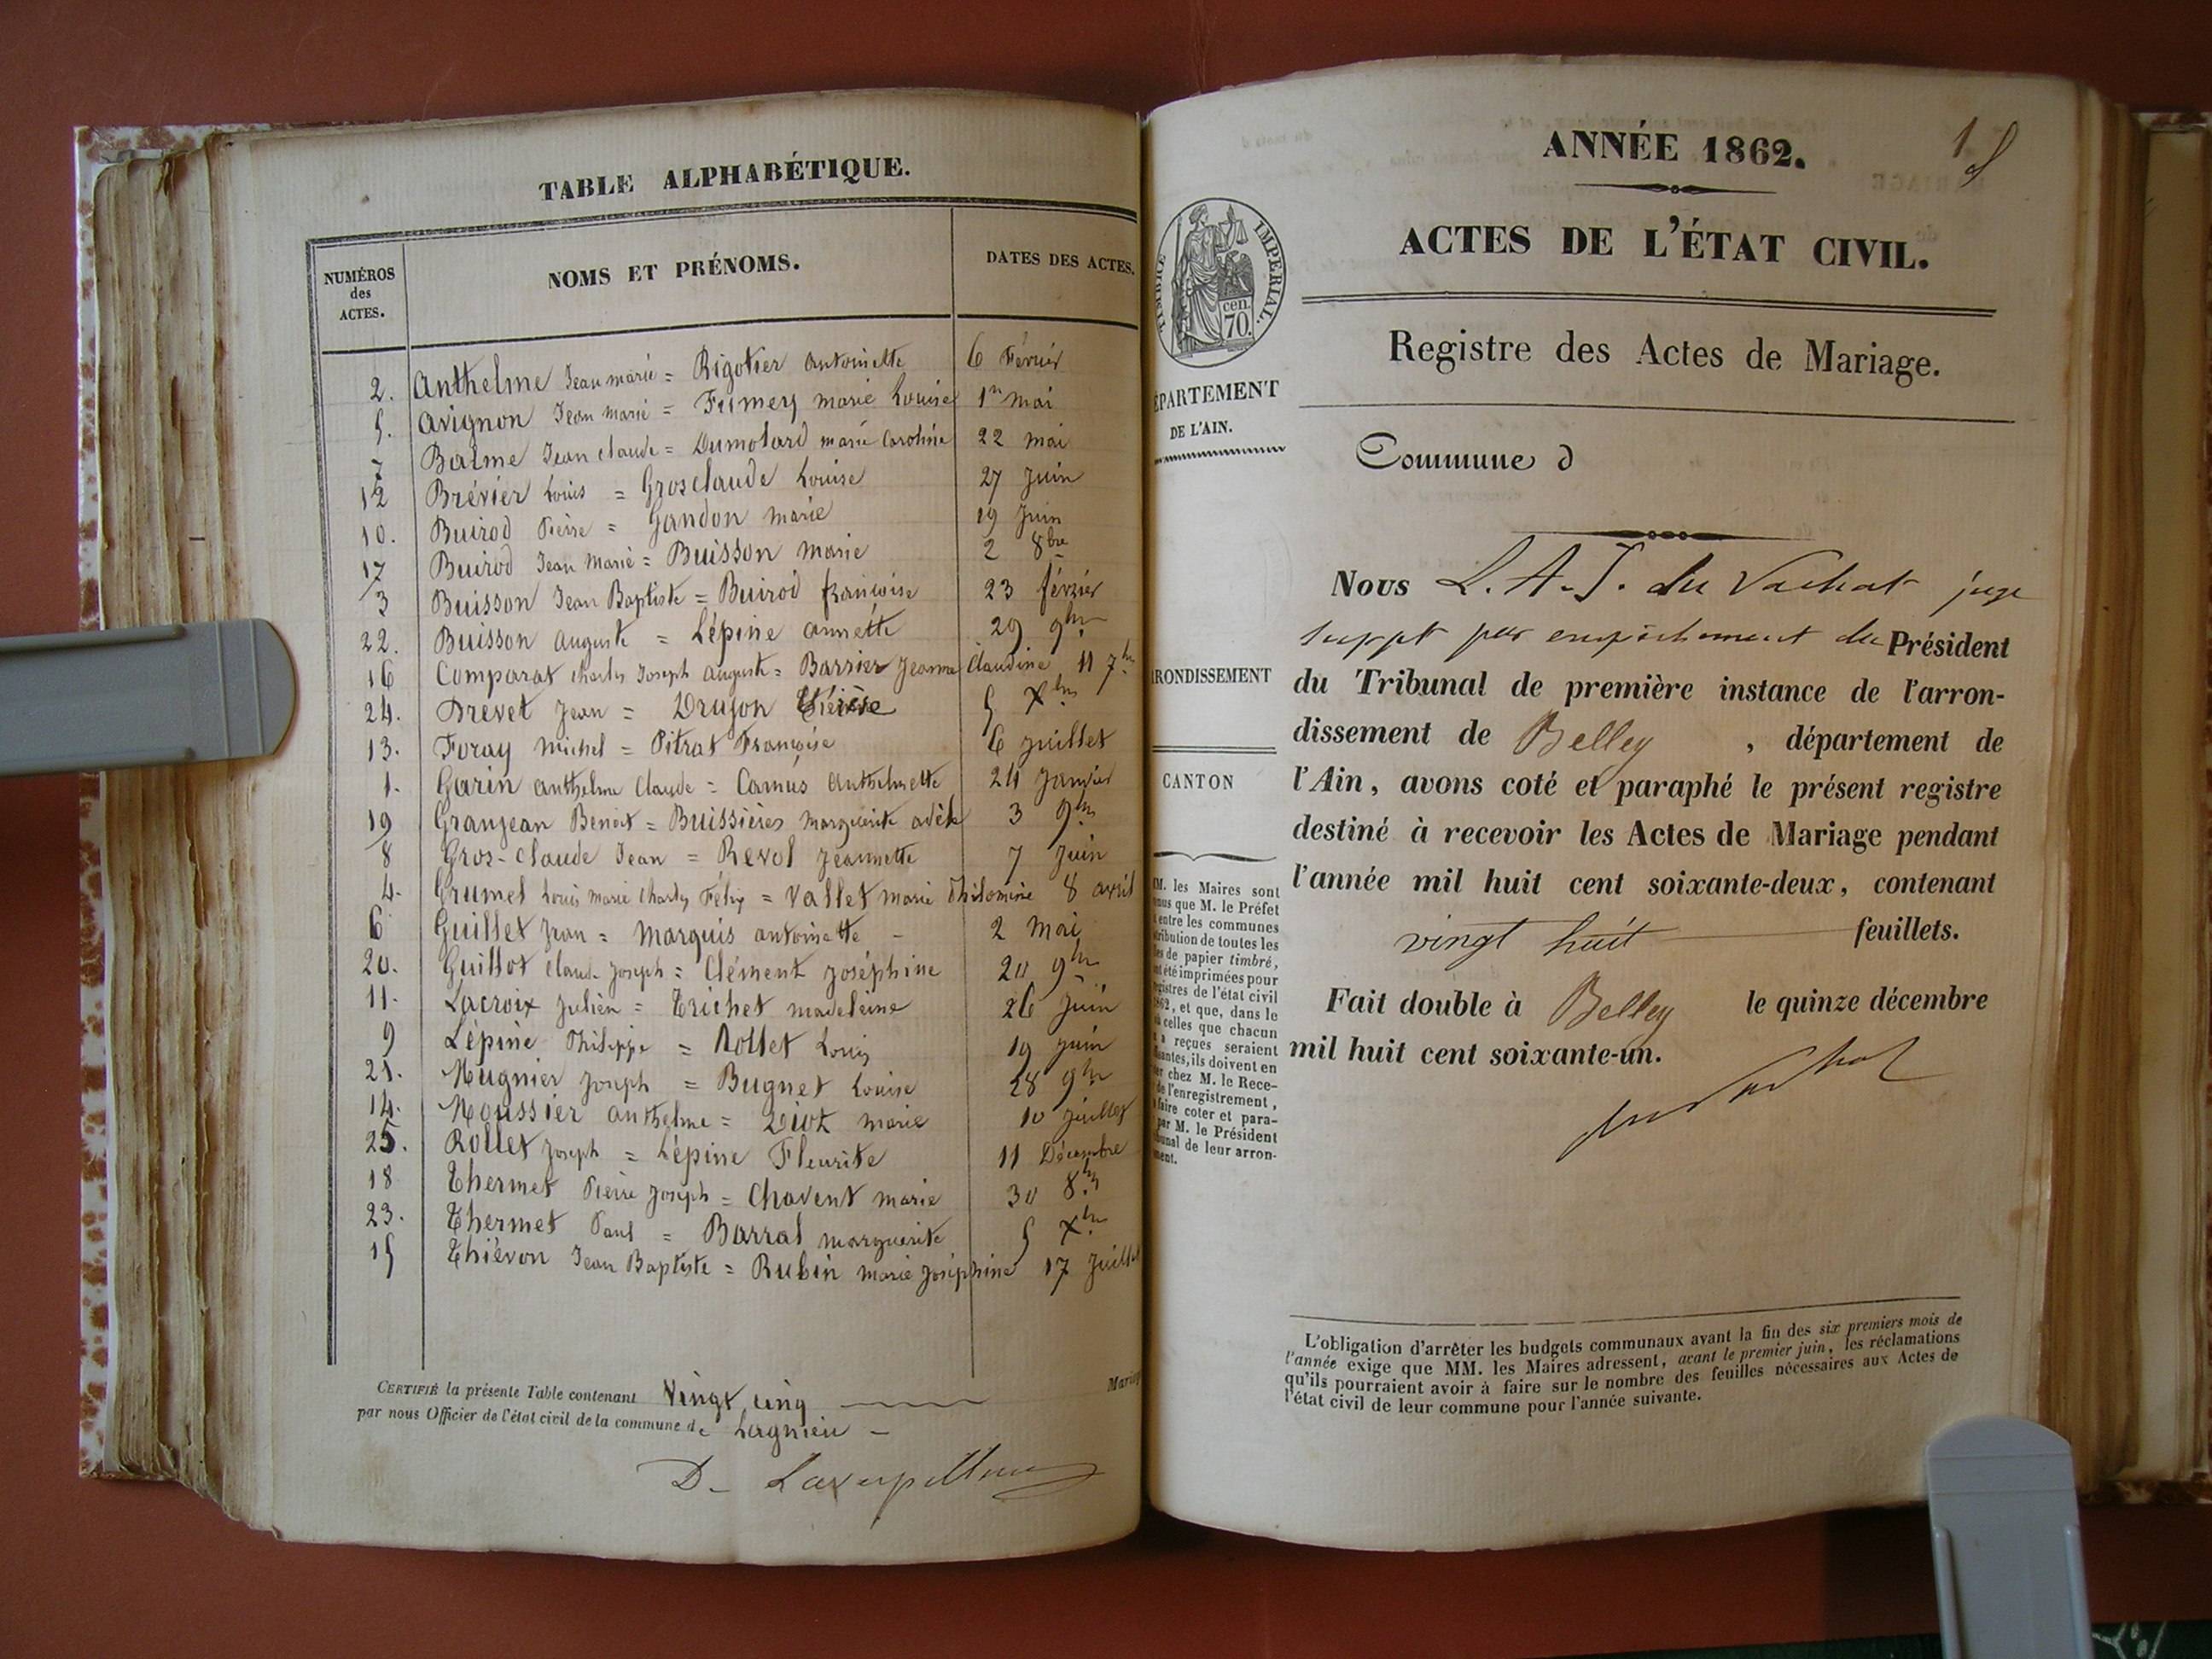 TABLE ALPHABÉTIQUE.
NUMÉROS des ACTES. NOMS ET PRÉNOMS. DATES DES ACTES.
2. Anthelme Jean marie = Rigotier antoinette 6 Février
5. Avignon Jean marie = Fumery marie Louise 1er mai
7 Balme Jean claude = Dumolard marie Caroline 22 mai
12 Brévier Louis = Grosclaude Louise 27 Juin
10. Buirod Pierre = Gandon marie 19 Juin
17 Buirod Jean Marie = Buisson marie 2 8bre
3 Buisson Jean Baptiste = Buirod françoise 23 février
22. Buisson auguste = Lépine annette 29 9bre
16 Comparat charles Joseph auguste = Barrier Jeanne Claudine 11 7bre
24. Drevet Jean = Drujon 5 Xbre
13. Foray michel = Pitrat Françoise 6 Juillet
1. Garin anthelme Claude = Camus anthelmette 24 Janvier
19 Granjean Benoit = Buissières marguerite adèle 3 9bre
8 Gros-claude Jean = Revol Jeannette 7 Juin
4. Grumel Louis marie Charles Félix = Vallet marie Philomine 8 avril
6 Guillet Jean = Marquis antoinette - 2 mai
20. Guillot Claude Joseph = Clément Joséphine 20 9bre
11. Lacroix Julien = Trichet madeleine 26 Juin
9 Lépine Philippe = Rollet Louise 19 Juin
21. Mugnier Joseph = Bugnet Louise 28 9bre
14. Moussier anthelme = Diot marie 10 Juillet
25. Rollet Joseph = Lépine Fleurite 11 Décembre
18 Thermet Pierre Joseph = Chavent marie 30 8bre
23. Thermet Paul = Barral marguerite 5 Xbre
15 Thiévon Jean Baptiste = Rubin marie Joséphine 17 Juillet
CERTIFIÉ la présente Table contenant Vingt cinq
par nous Officier de l'état civil de la commune de Lagnieu -
Mariag
ANNÉE 1862.
1
ACTES DE L'ÉTAT CIVIL.
Registre des Actes de Mariage.
TIMBRE IMPÉRIAL.
cen. 70.
ÉPARTEMENT
DE L'AIN.
RONDISSEMENT
CANTON
M. les Maires sont
nus que M. le Préfet
entre les communes
tribution de toutes les
es de papier timbré,
nt été imprimées pour
gistres de l'état civil
1862, et que, dans le
ù celles que chacun
a reçues seraient
santes, ils doivent en
er chez M. le Rece-
de l'enregistrement,
faire coter et para-
par M. le Président
bunal de leur arron-
ment.
Commune d
Nous L. A. J. du Vachat juge
suppt par empêchement du Président
du Tribunal de première instance de l'arron-
dissement de Belley, département de
l'Ain, avons coté et paraphé le présent registre
destiné à recevoir les Actes de Mariage pendant
l'année mil huit cent soixante-deux, contenant
vingt huit feuillets.
Fait double à Belley le quinze décembre
mil huit cent soixante-un.
L'obligation d'arrêter les budgets communaux avant la fin des six premiers mois de
l'année exige que MM. les Maires adressent, avant le premier juin, les réclamations
qu'ils pourraient avoir à faire sur le nombre des feuilles nécessaires aux Actes de
l'état civil de leur commune pour l'année suivante.